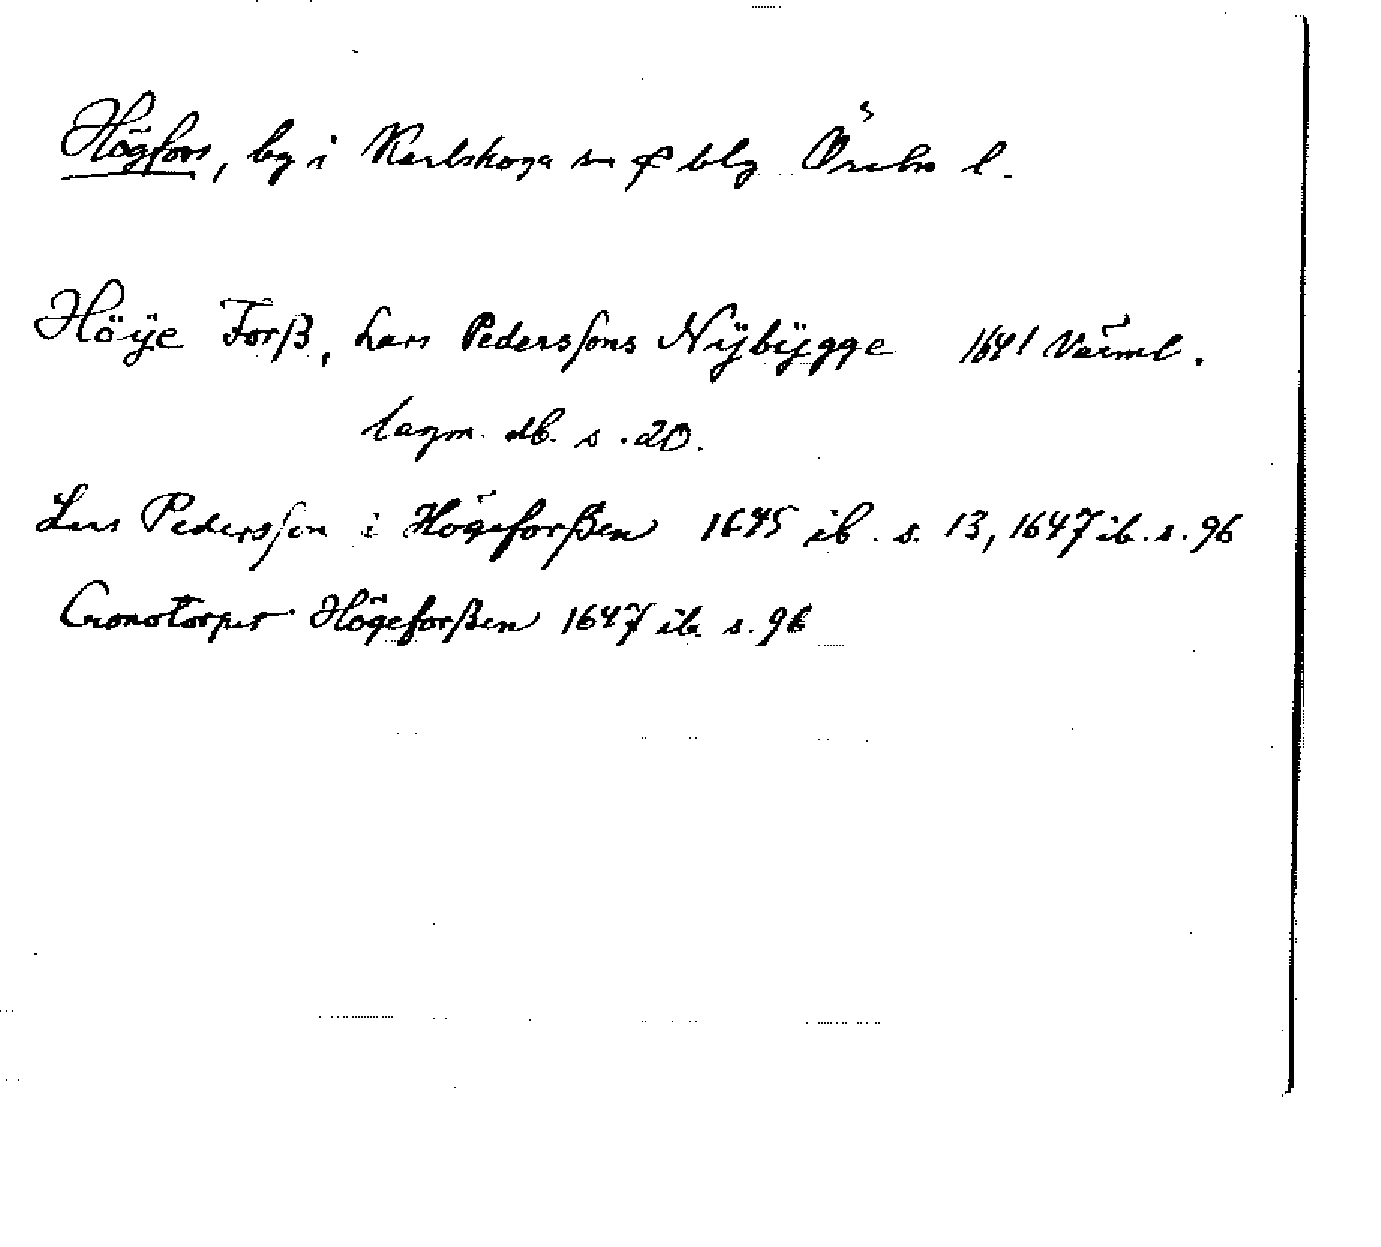 Högfors, by i Karlskoga sn o blg Örebro l.
Höÿe Forß, Lars Pedersſons Nÿbÿgge 1641 Värml.
lagm. db. s. 20.
Lars Pedersſon i Högeforßen 1645 ib. s. 13, 1647 ib. s. 96
Cronotorpet Högeforßen 1647 ib. s. 96